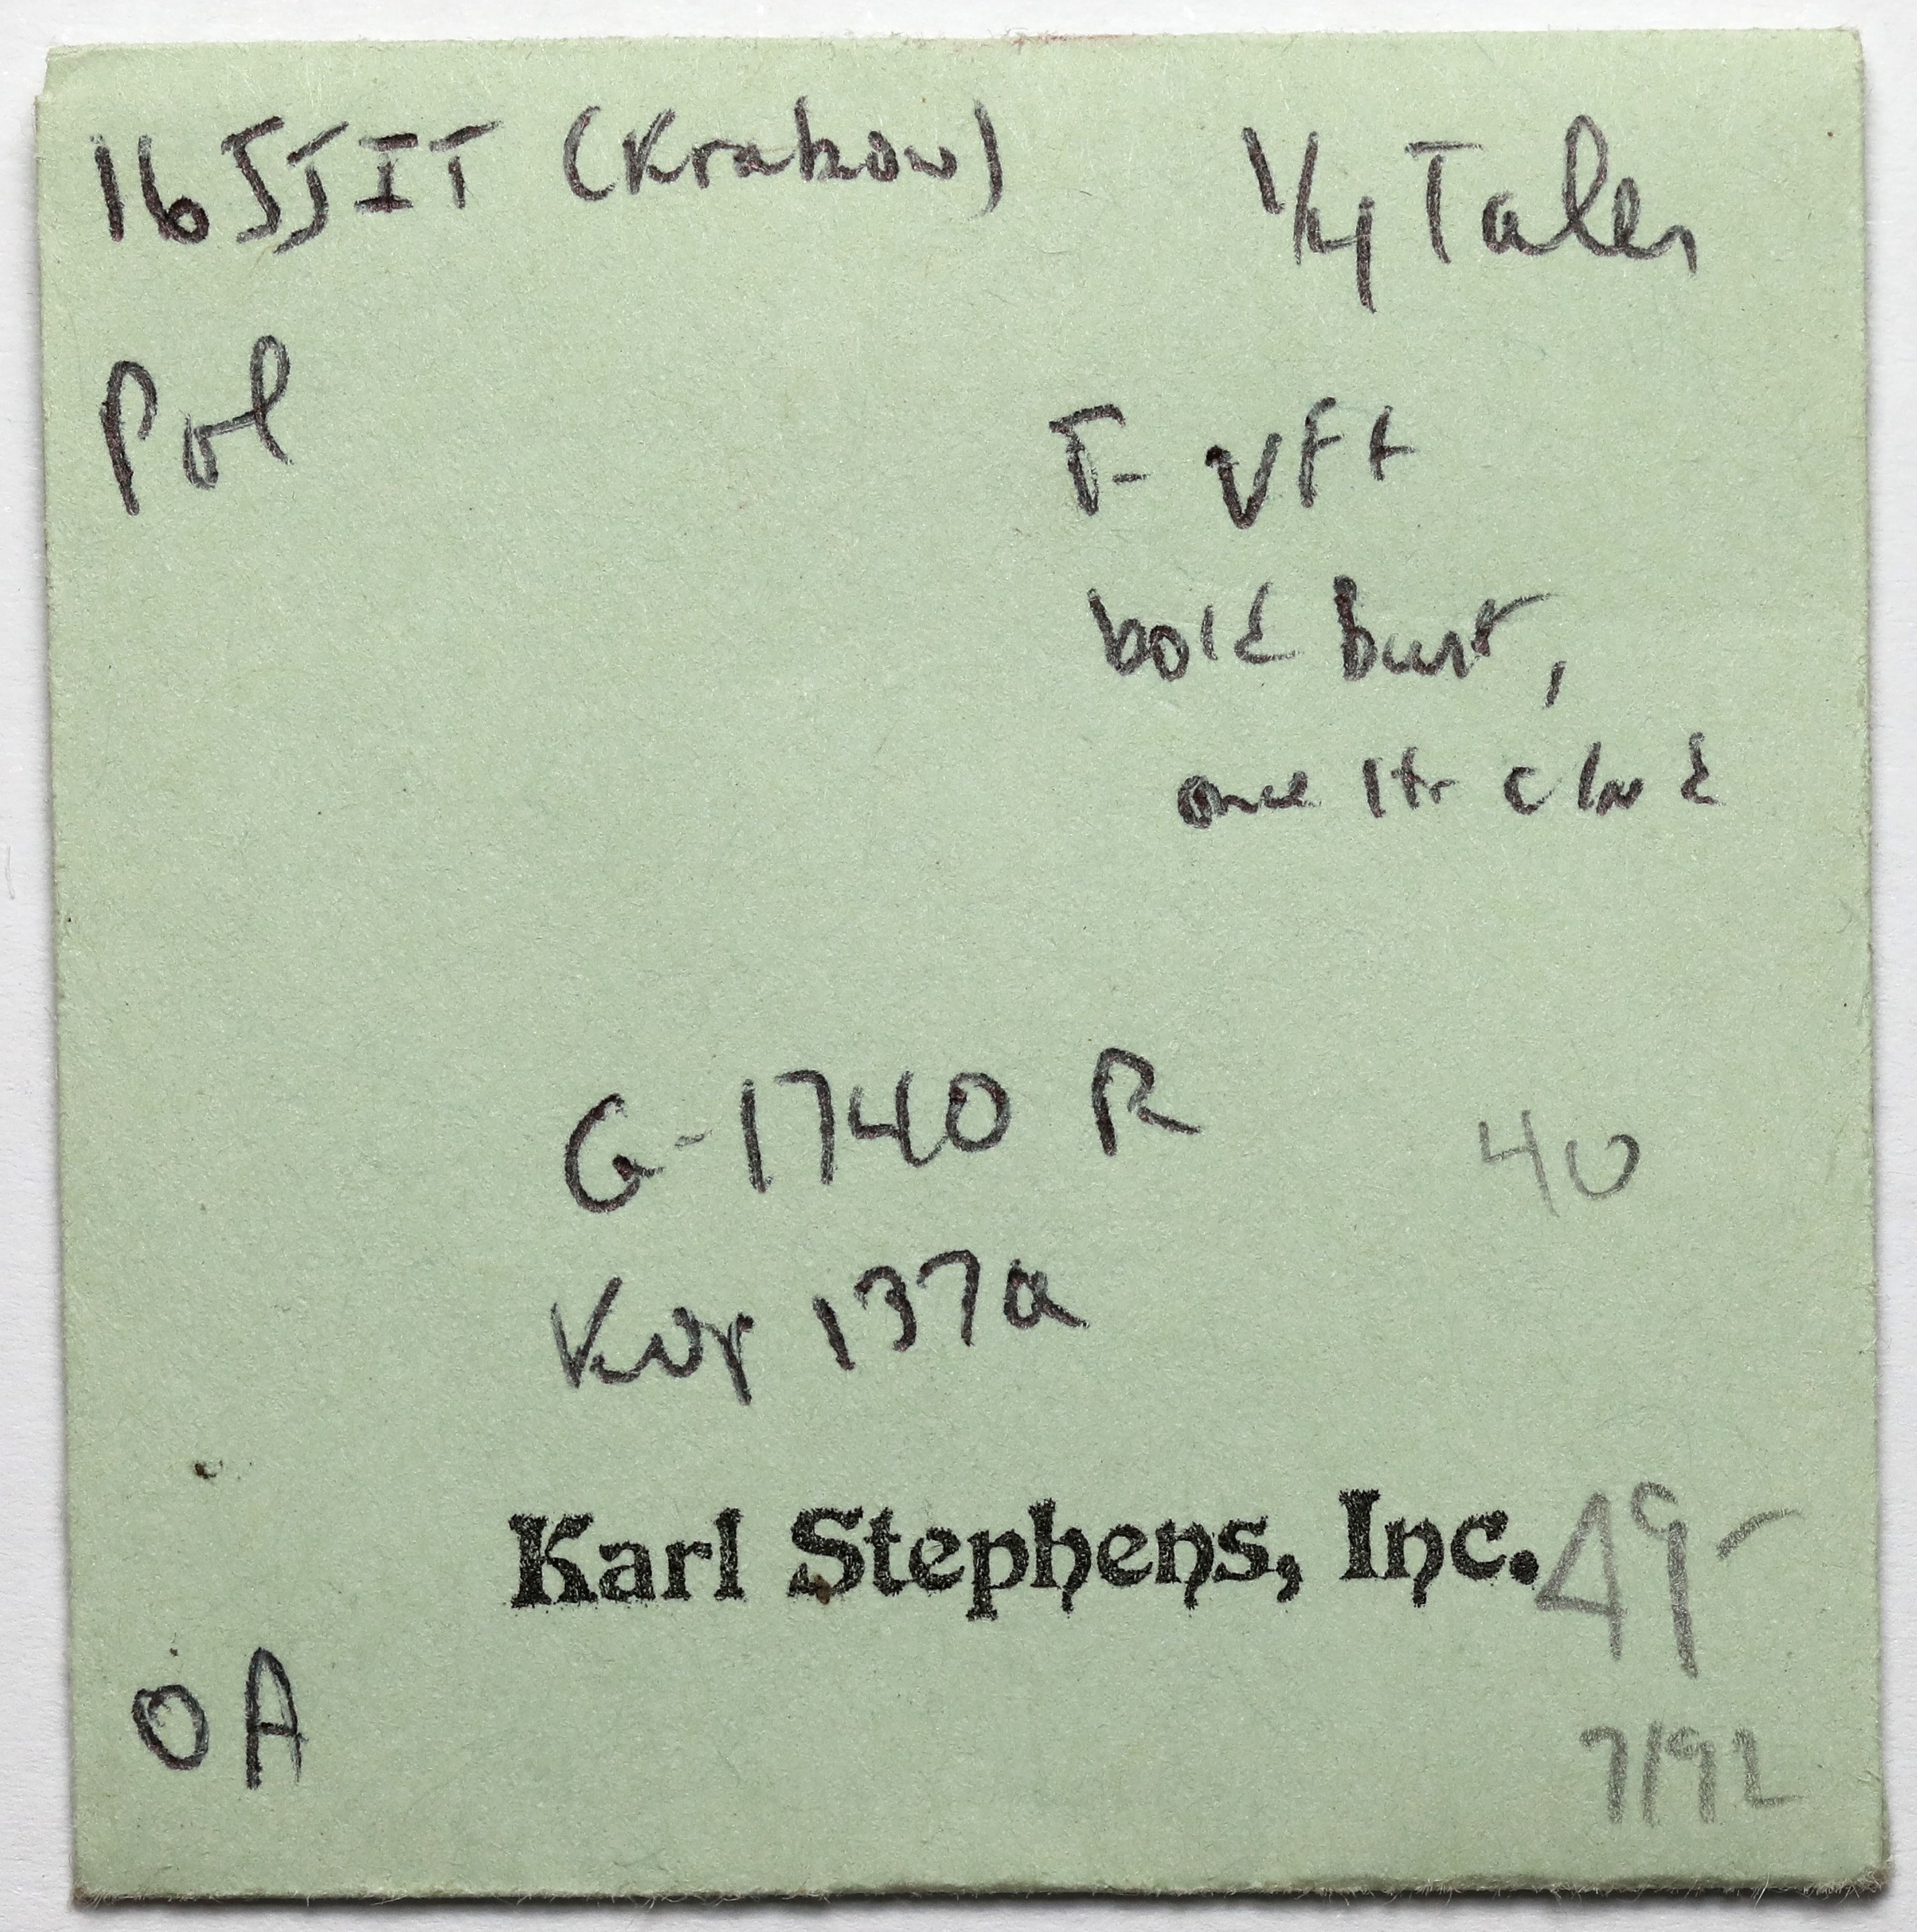 1655IT (Krakow) 1/4 Taler
Pol
F-VF+
bold bust,
once ltr clnd
G-1740 R
40
Kop 137a
Karl Stephens, Inc. 49-
OA
7/92